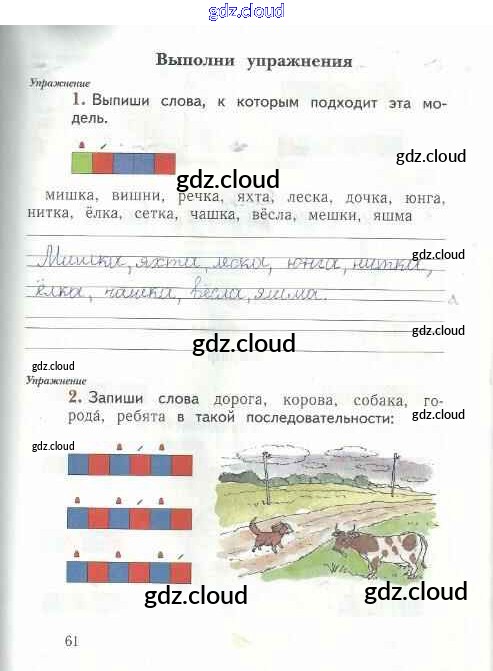 gdz.cloud
Выполни упражнения
Упражнение
1. Выпиши слова, к которым подходит эта мо-
дель.
gdz.cloud
gdz.cloud
мишка, вишни, речка, яхта, леска, дочка, юнга,
нитка, ёлка, сетка, чашка, вёсла, мешки, яшма
gdz.cloud
Мишка, яхта, леска, юнга, нитка,
ёлка, чашка, вёсла, яшма.
gdz.cloud
gdz.cloud
gdz.cloud
Упражнение
2. Запиши слова дорога, корова, собака, го-
рода́, ребята в такой последовательности:
gdz.cloud
gdz.cloud
gdz.cloud
gdz.cloud
gdz.cloud
gdz.cloud
61